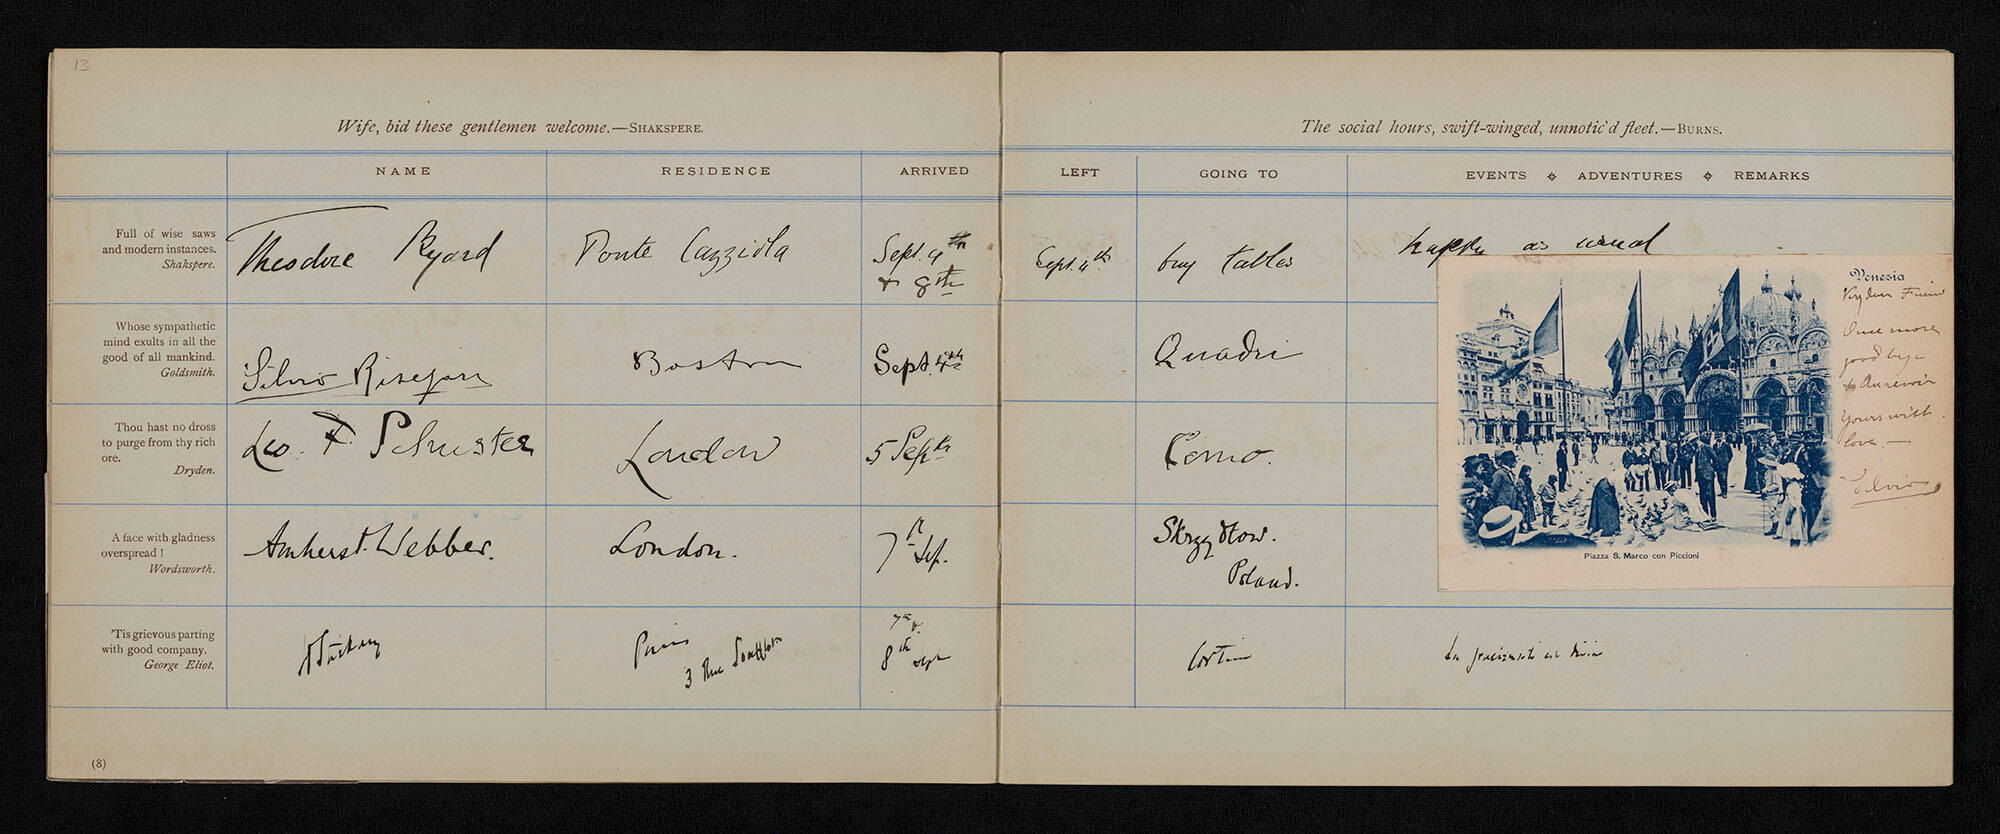 13
Wife, bid these gentlemen welcome.—SHAKSPERE.
NAME RESIDENCE ARRIVED
Full of wise saws
and modern instances.
Shakspere.
Theodore Byard Ponte Cazziola Sept. 4th
+ 8th
Whose sympathetic
mind exults in all the
good of all mankind.
Goldsmith.
Silvio Boston Sept. 4th
Thou hast no dross
to purge from thy rich
ore.
Dryden.
Leo. F. Schuster London 5 Septr
A face with gladness
overspread !
Wordsworth.
Amherst Webber. London. 7th Sep.
'Tis grievous parting
with good company.
George Eliot.
Paris
3 Rue
8th Sept
(8)
The social hours, swift-winged, unnotic'd fleet.—BURNS.
LEFT GOING TO EVENTS ADVENTURES REMARKS
Sept. 4th. buy tables happy as usual
Quadri
Como.
Poland.
Venezia
Very dear Friend
Once more
good bye
& Au revoir
Yours with
love.—
Silvio
Piazza S. Marco con Piccioni